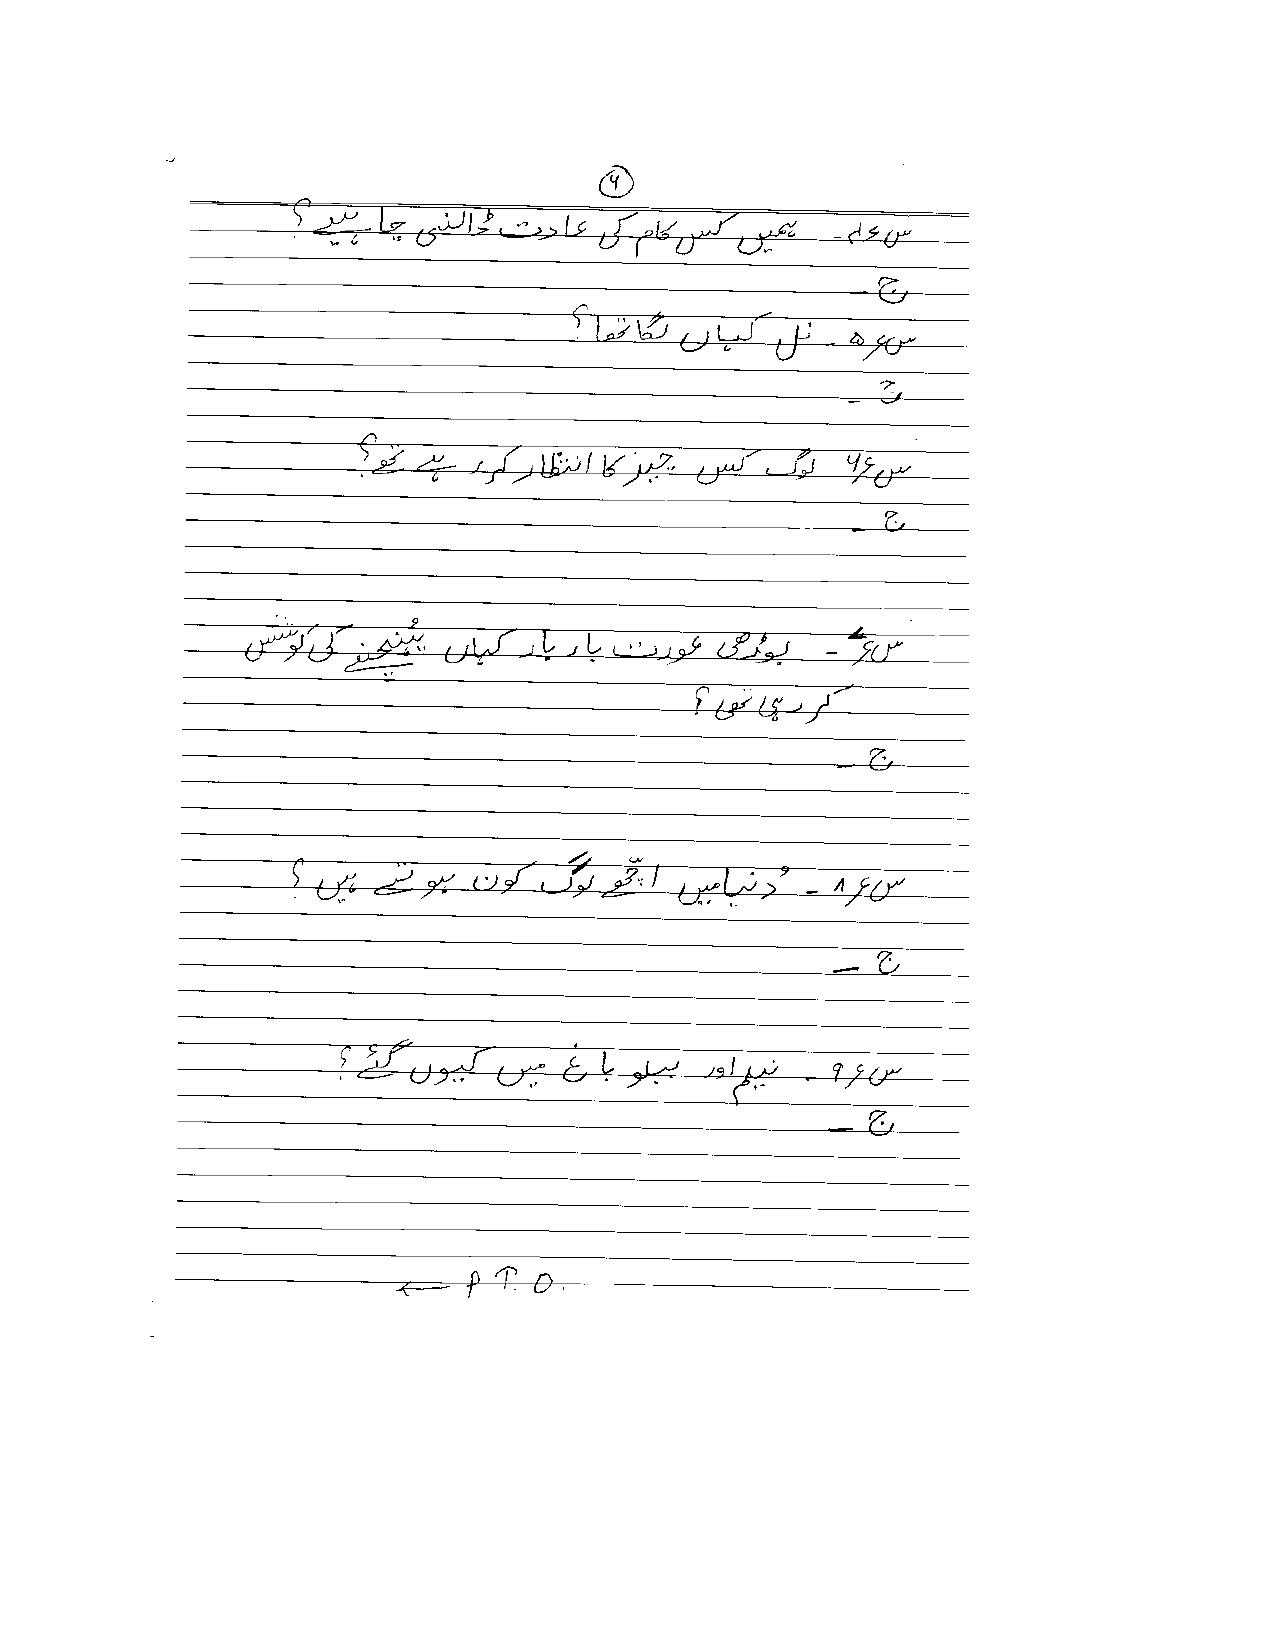 ۴
س۴۔ ہمیں کس کام کی عادت ڈالنی چاہیے؟
ج۔
س۵۔ نل کہاں لگا تھا؟
ج۔
س۶ لوگ کس چیز کا انتظار کر رہے تھے؟
ج۔
س۔ بوڑھی عورت بار بار کہاں پہنچنے کی کوشش
کر رہی تھی؟
ج۔
س۸۔ دُنیا میں اچھّے لوگ کون ہوتے ہیں؟
ج۔
س۹۔ نیلم اور ببلو باغ میں کیوں گئے؟
ج۔
← P.T.O.